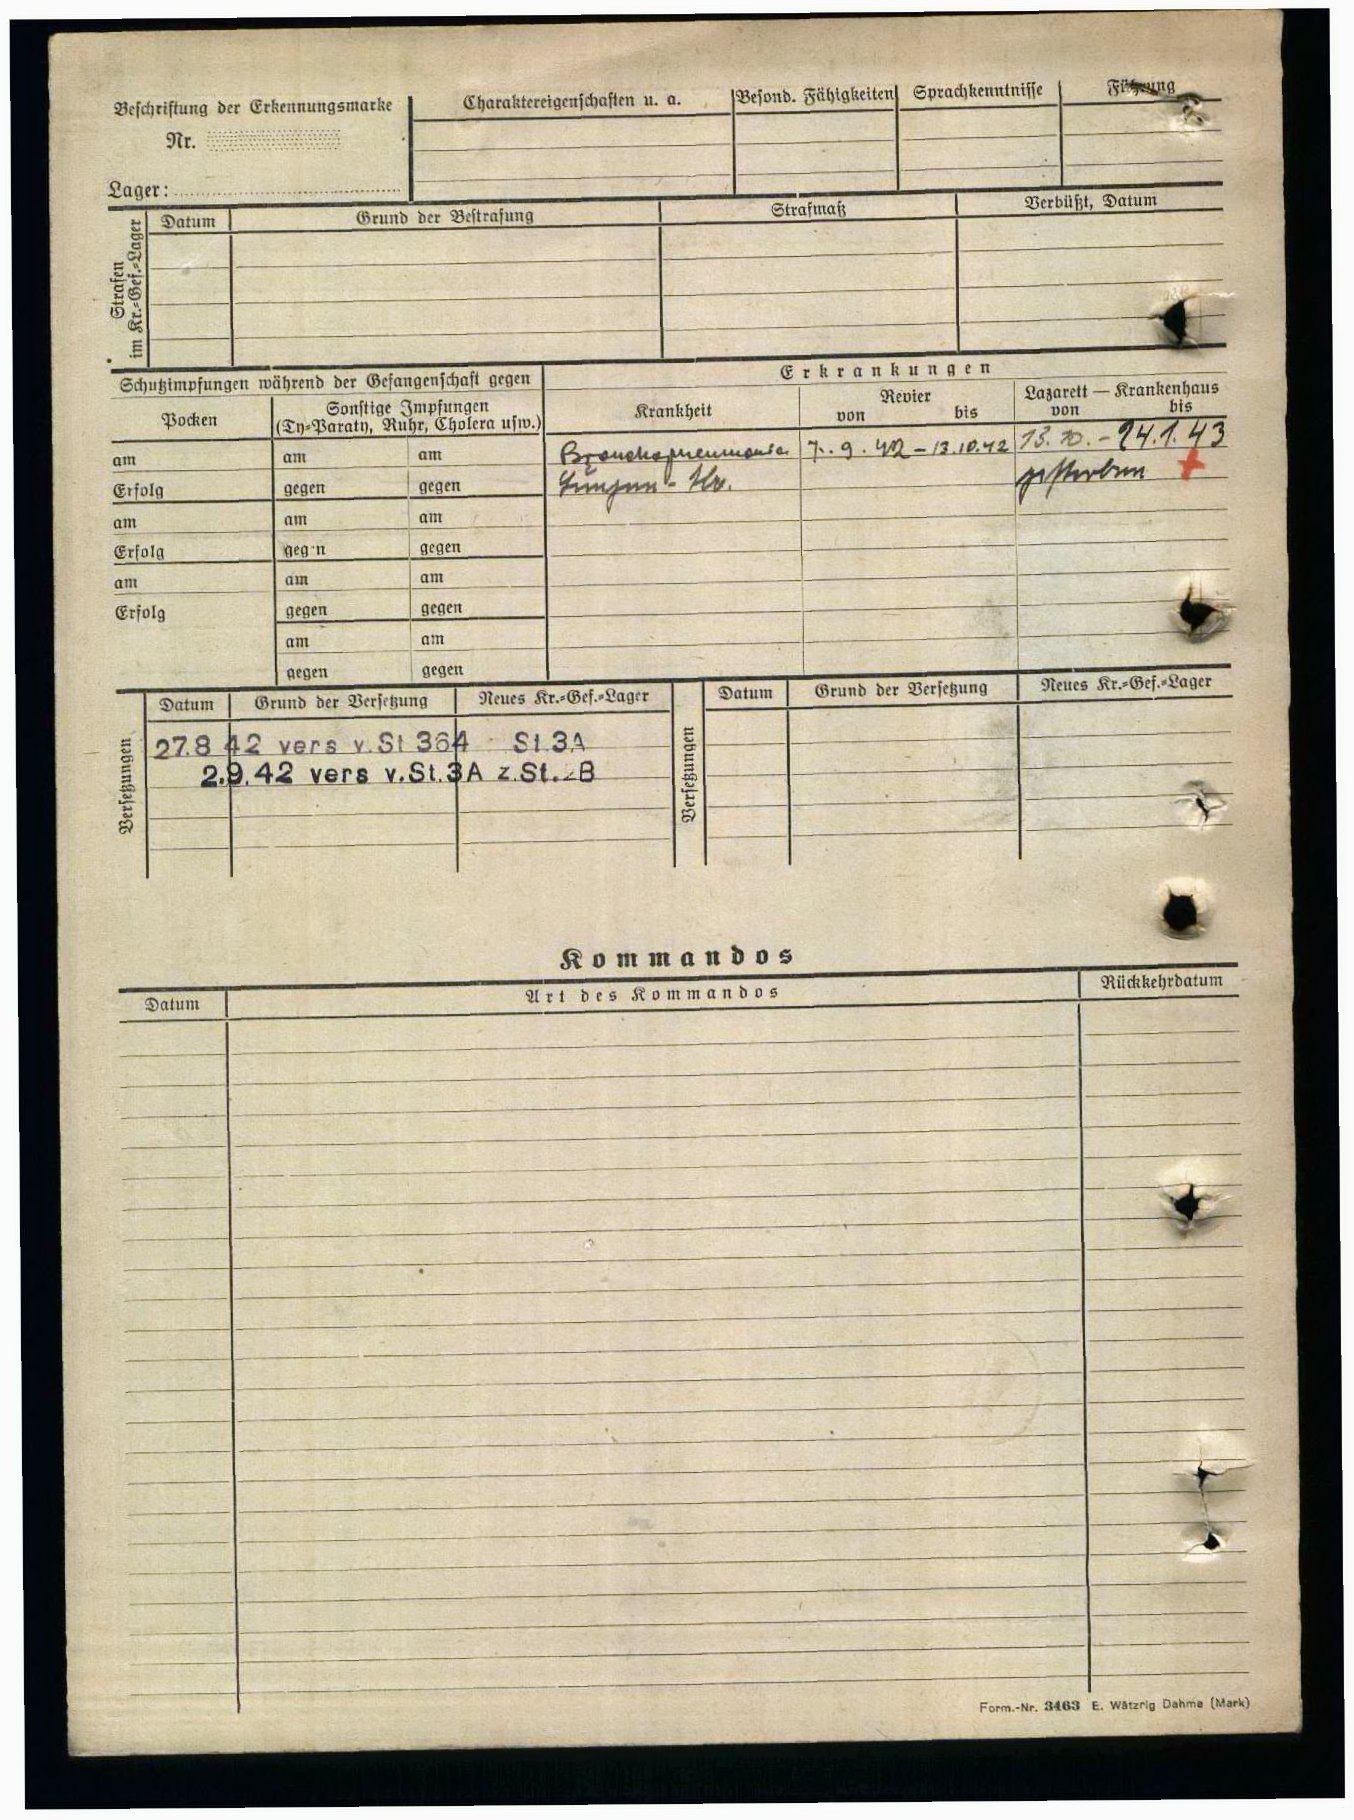 Beschriftung der Erkennungsmarke
Nr.
Lager:
Charaktereigenschaften u. a.
Besond. Fähigkeiten
Sprachkenntnisse
Führung
Strafen
im Kr.=Gef.=Lager
Datum
Grund der Bestrafung
Strafmaß
Verbüßt, Datum
Schutzimpfungen während der Gefangenschaft gegen
Erkrankungen
Pocken
Sonstige Impfungen
(Ty=Paraty, Ruhr, Cholera usw.)
Krankheit
Revier
von bis
Lazarett — Krankenhaus
von bis
am am am
Bronchopneumonia 7. 9. 42 - 13.10.42 13.10. - 24.1.43
Erfolg gegen gegen
Lungen - Tbc. gestorben +
am am am
Erfolg geg n gegen
am am am
Erfolg gegen gegen
am am
gegen gegen
Versetzungen
Datum Grund der Versetzung Neues Kr.=Gef.=Lager
27.8 42 vers v.St 364 St.3A
2.9.42 vers v.St.3A z.St. B
Versetzungen
Datum Grund der Versetzung Neues Kr.=Gef.=Lager
Kommandos
Datum Art des Kommandos Rückkehrdatum
Form.-Nr. 3463 E. Wätzrig Dahme (Mark)